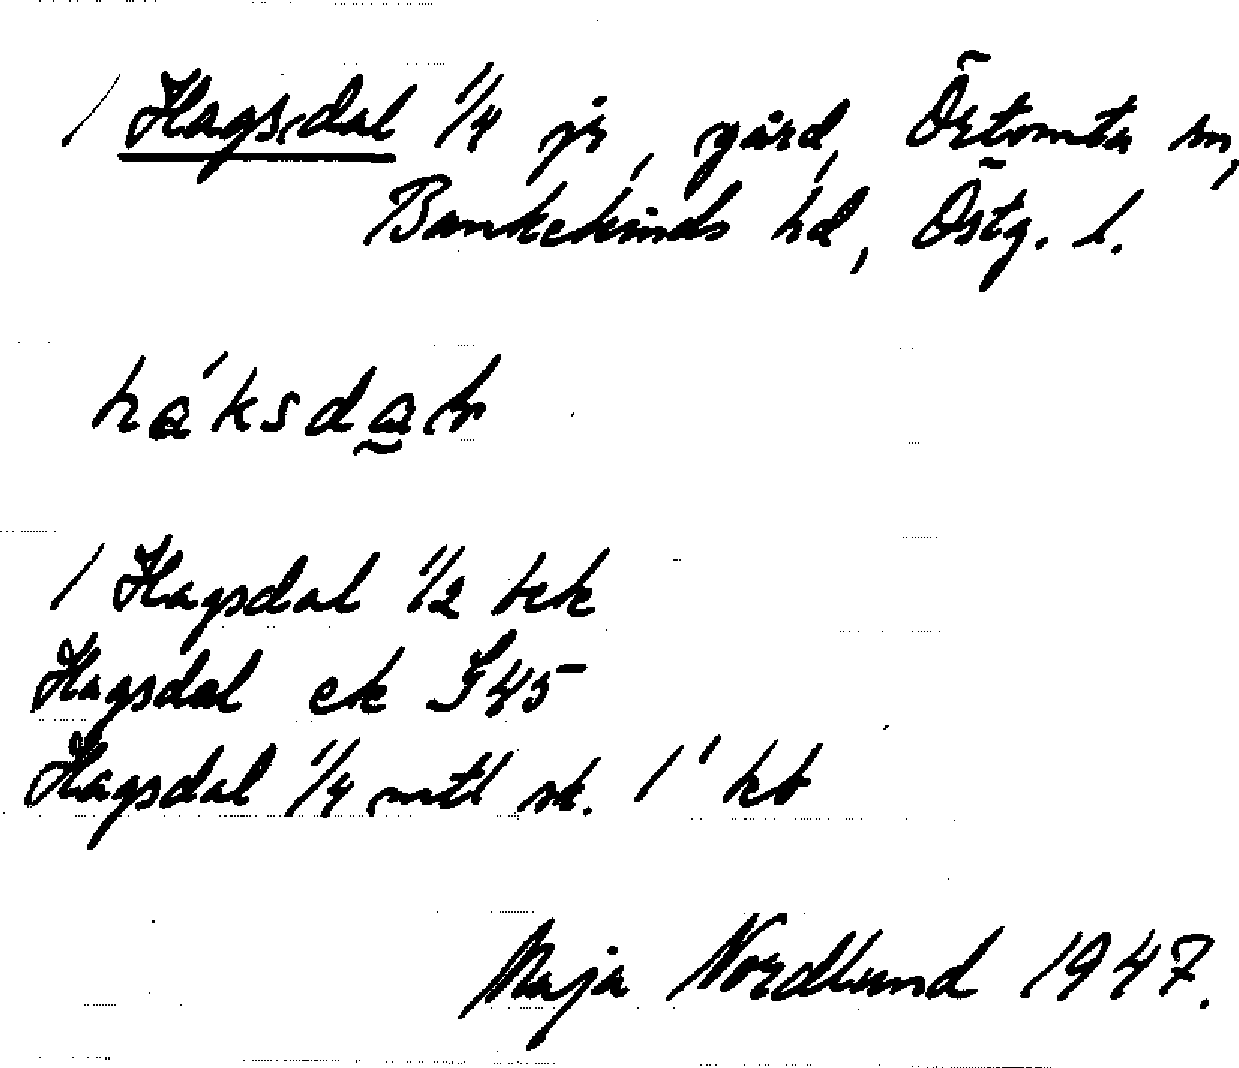 / Hagsdal 1/4 jr, gård, Örtomta sn,
Bankekinds hd, Östg. l.
/ Hagsdal 1/2 tek
Hagsdal ek S45
Hagsdal 1/4 mtl sk. 1' kb
Maja Nordlund 1947.